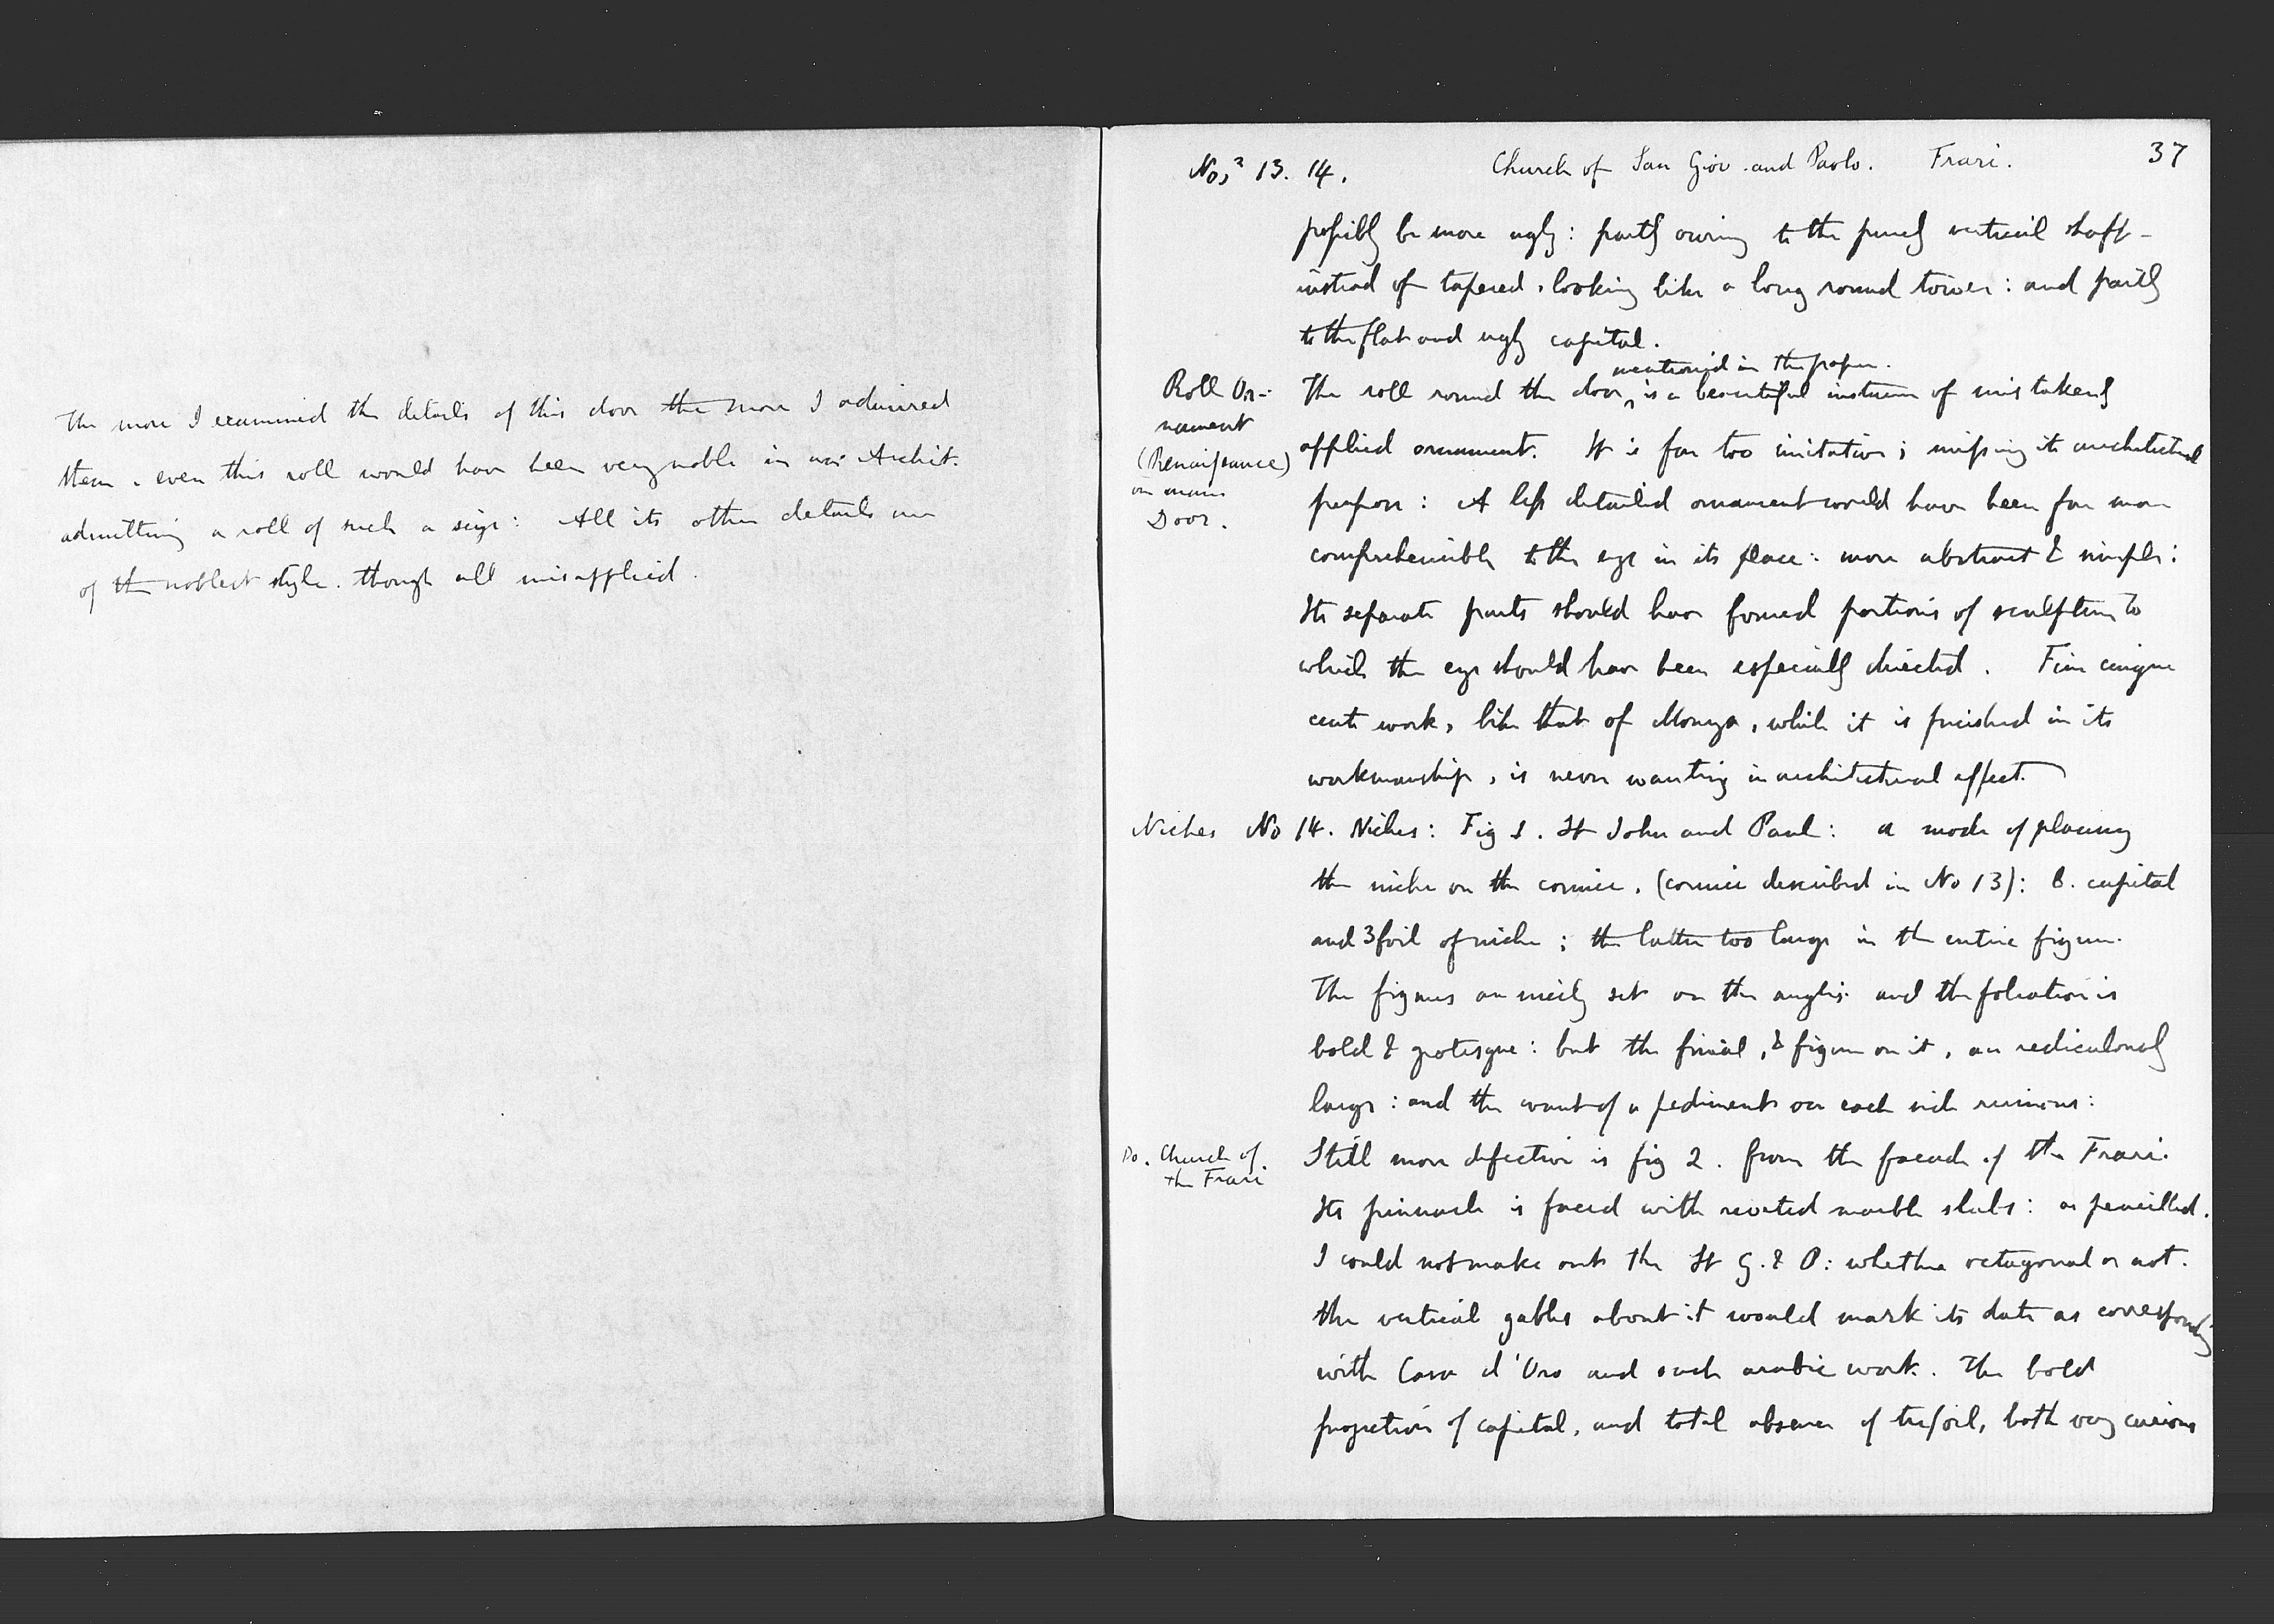 The more I examined the details of this door the more I admired
them. even this roll would have been very noble in an Archit.
admitting a roll of such a size: All its other details are
of the noblest style. though all misapplied.
Nos 13. 14. Church of San Giov. and Paolo. Frari. 37
possibly be more ugly: partly owing to the purely vertical shaft -
instead of tapered, looking like a long round tower: and partly
to the flat and ugly capital.
mentioned in the paper.
Roll Or-
nament
(Renaissance)
on main
Door.
The roll round the door, is a beautiful instance of mistakenly
applied ornament. It is far too imitative; missing its architectural
purpose: A less detailed ornament would have been far more
comprehensible to the eye in its place: more abstract & simple:
Its separate parts should have formed portions of sculpture to
which the eye should have been especially directed. Fine cinque
cento work, like that of Monza, while it is finished in its
workmanship, is never wanting in architectural effect.
Niches No 14. Niches: Fig 1. St John and Paul: a mode of placing
the niche on the cornice. (cornice described in No 13): B. capital
and 3foil of niche; the latter too large in the entire figure.
The figures are nicely set on the angles. and the foliation is
bold & grotesque: but the finial, & figure on it, are rediculously
large: and the want of a pediment on each side ruinous:
Do. Church of
the Frari
Still more defective is fig 2. from the facade of the Frari.
Its pinnacle is faced with rivetted marble slabs: as pencilled.
I could not make out the St G. & P: whether octagonal or not.
the vertical gables about it would mark its date as corresponding
with Casa d'Oro and such arabic work. The bold
projection of capital, and total absence of trefoil, both very curious